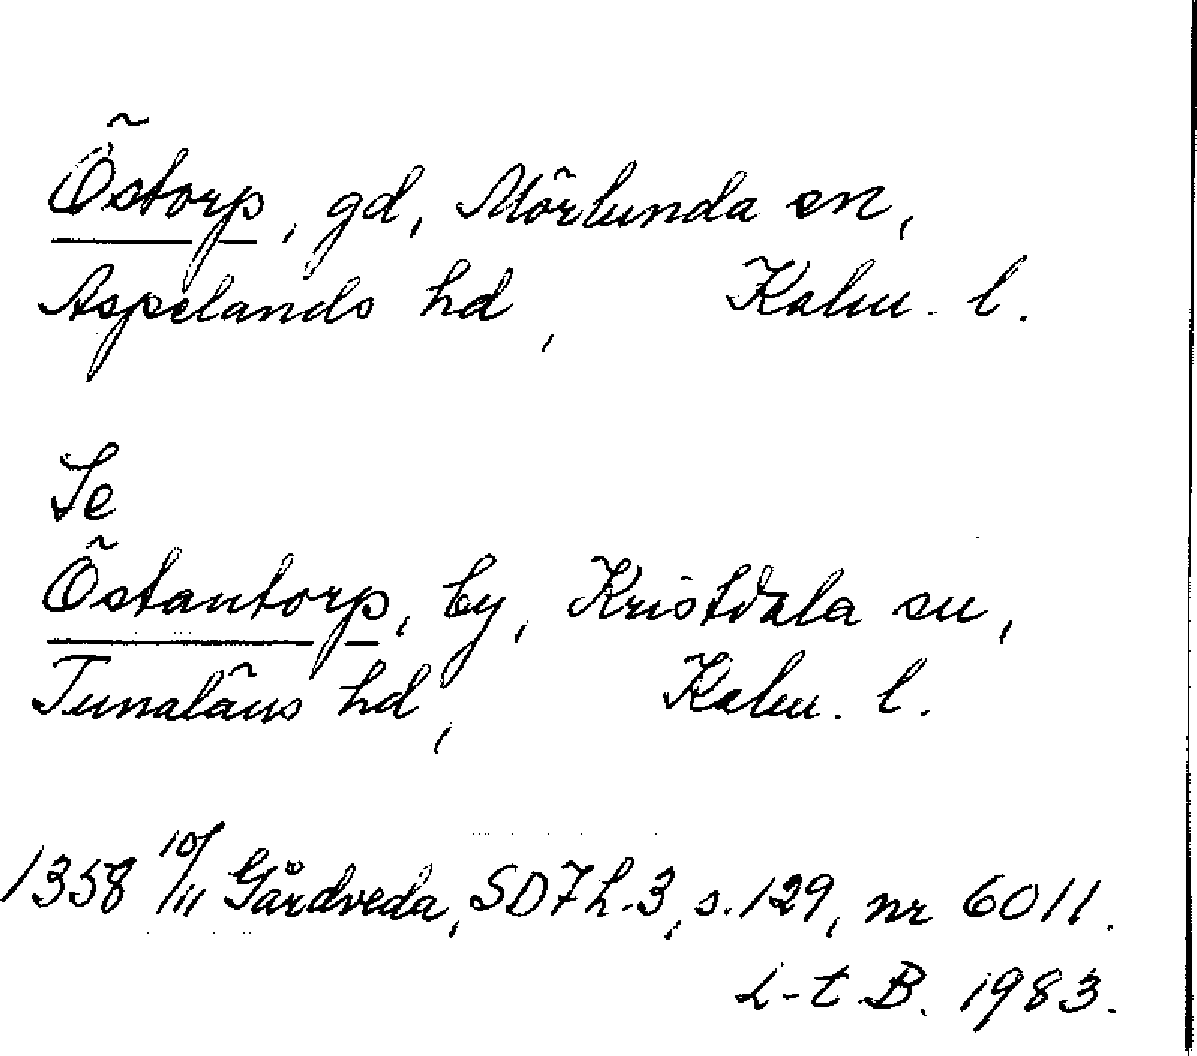 Östorp, gd, Mörlunda sn,
Aspelands hd, Kalm. l.
Se
Östantorp, by, Kristdala sn,
Tunaläns hd, Kalm. l.
1358 10/11 Gårdveda, SD7 h. 3, s. 129, nr 6011.
L-t B. 1983.